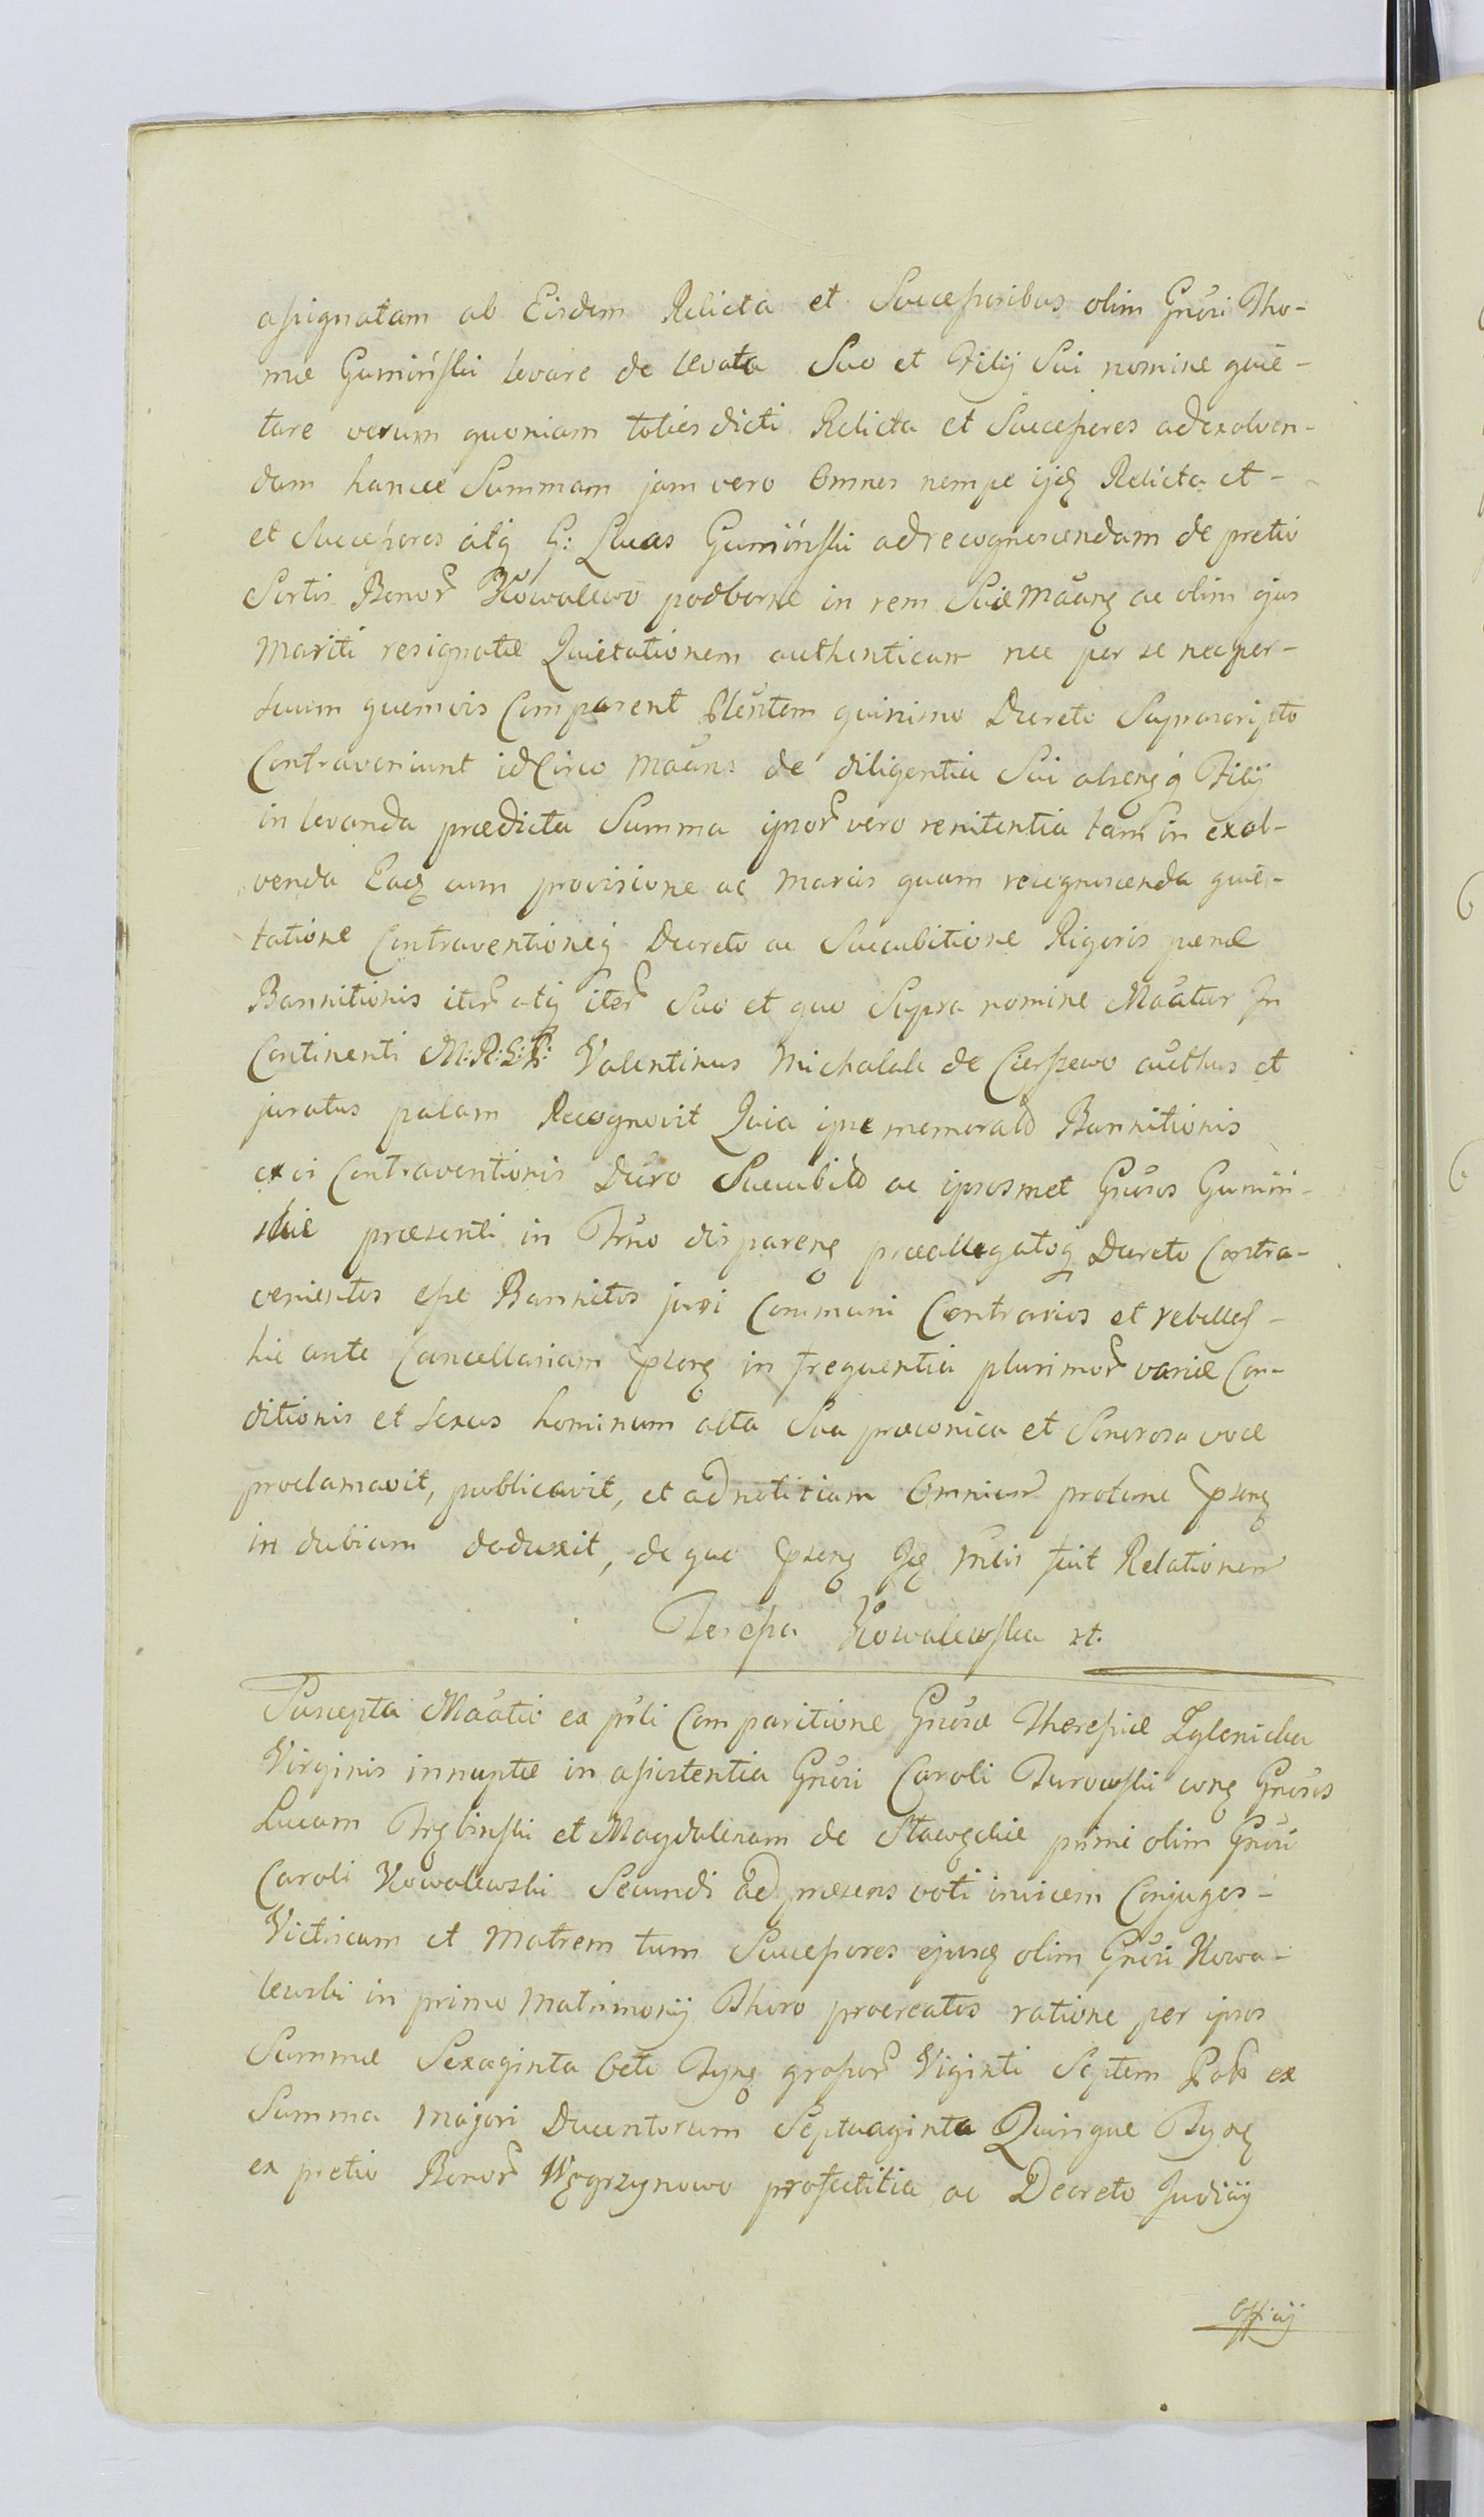 assignatam ab Eisdem Relicta et Successoribus olim Gnösi Tho-
mæ Gumiński levare de levata Suo et Filij Sui nomine quie-
tare verum quoniam toties dicti Relicta et Successores ad exolven-
dam hancce Summam jam vero Omnes nempe ijdę Relicta et -
et Successores atq G: Lucas Gumiński ad recognoscendam de pretio
Sortis Bonor Kowalewo podborne in rem Suæ Maäņę ac olim ejus
Mariti resignatæ Quietationem authenticam nec per se nec per -
suum quemvis Comparent Plëntem quinimo Decreto Suprascripto
Contraveniunt idCirco Maäns de diligentia Sui absenę q Filij
in levanda prædicta Summa ipsor vero renitentia tam in exol-
venda Eadę cum provisione ac Marcis quam recognoscenda quie-
tatione Contraventioneq Decreto ac Succubitione Rigoris pænæ
Bannitionis iter atq iter Suo et quo Supra nomine Maätur In
Continenti M:R:G:P: Valentinus Michalak de Cierpewo aüthus et
juratus palam Recognovit Quia ipse memorato Bannitionis
ex vi Contraventionis Dëcro Succubito ac ipsosmet Gnösos Gumiń-
skie præsenti in Trño disparenę præallegatoq Decreto Contra-
venientes esse Bannitos juri Communi Contrarios et rebelles -
hic ante Cancellariam pserę in frequentia plurimor variæ Con-
ditionis et Sexus hominum alta Sua præconica et Sonorosa voce
proclamavit, publicavit, et ad notitiam Omnium protune pserę
in dubiam deduxit, de quo pserę Ję suis fecit Relationem
Teressa Kowalewska xt.
Suscepta Maätio ex pśli Comparitione Gnösæ Theressiæ Zglenicka
Virginis innuptæ in assistentia Gnösi Caroli Turowski corę Gnösos
Lucam Trębinski et Magdalenam de Stawęckie primi olim Gnösi
Caroli Kowalewski Secundi ad præsens voti invicem Conjuges -
Victricum et Matrem tum Successores ejusdę olim Gnösi Kowa-
lewski in primo Matrimonij Thoro procreatos ratione per ipsos
Summæ Sexaginta Octo Tyņę grossor Viginti Septem Pol ex
Summa Majori Ducentorum Septuaginta Quinque Tyņę
ex pretio Bonor Węgrzynowo profectitia ac Decreto Judicij
Officij